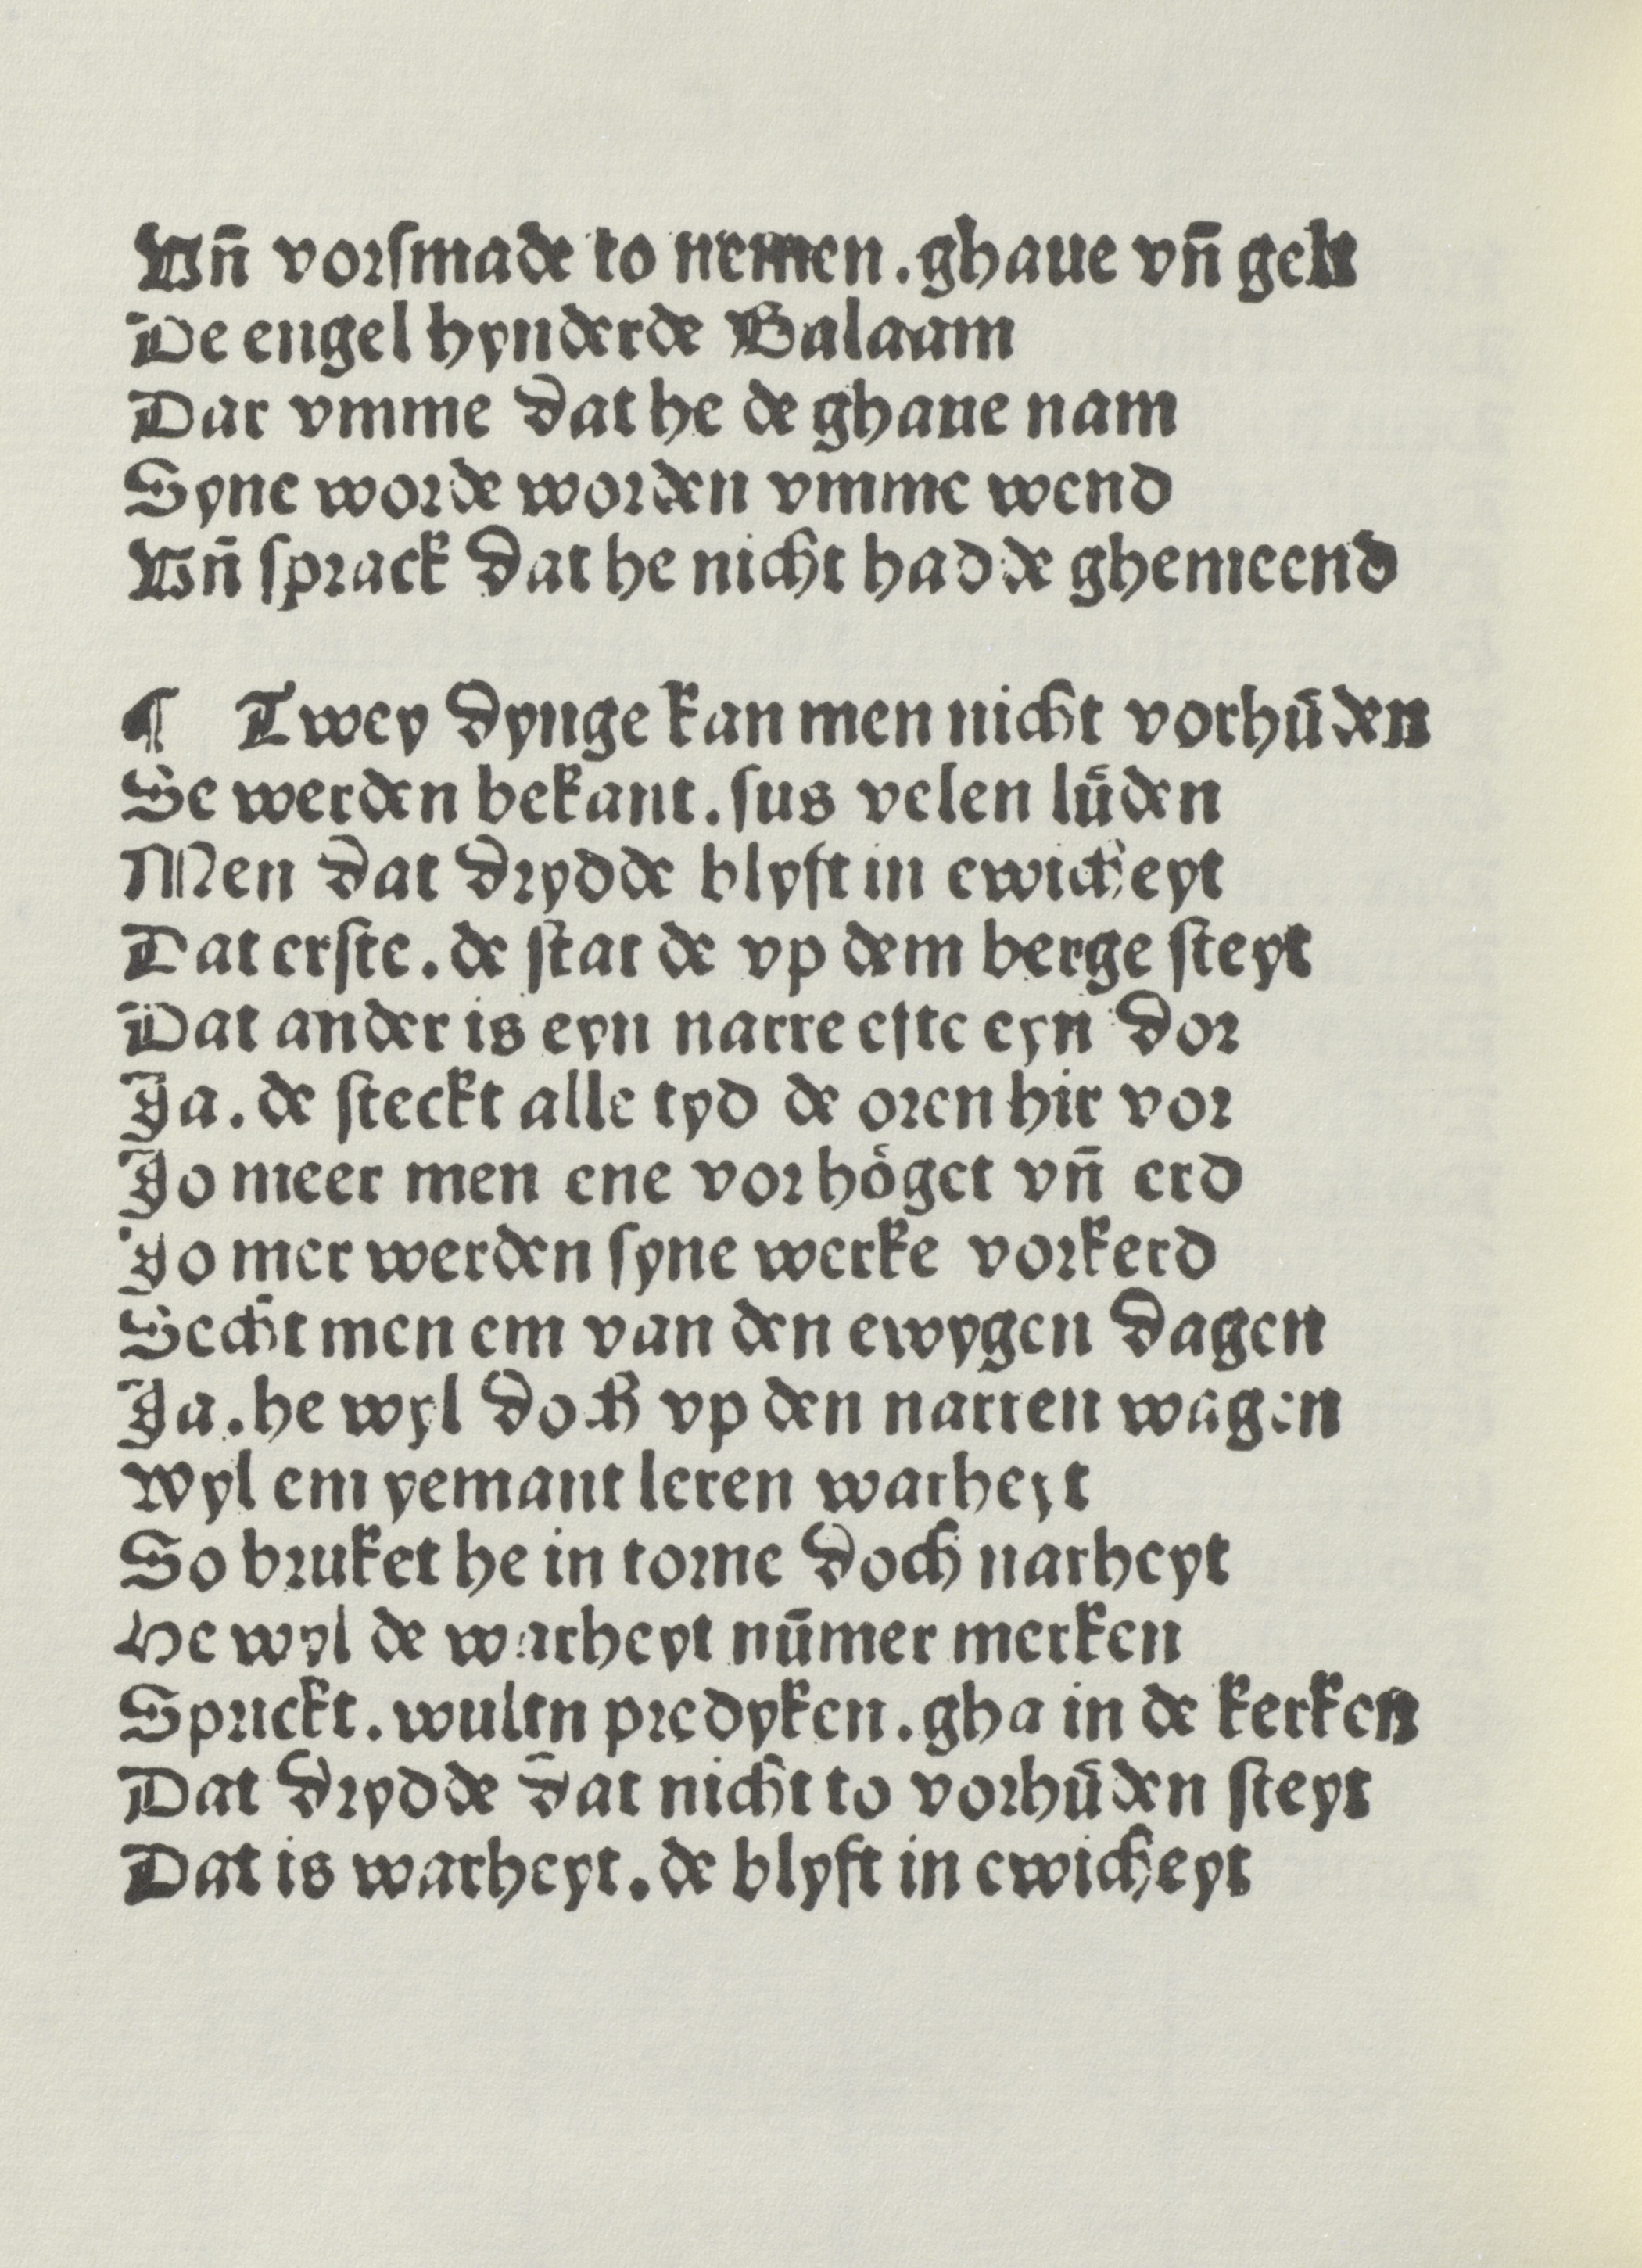 Vn̄ vorſmade to nemen. ghaue vn̄ gelt
De engel hynderde Balaam
Dar vmme dat he de ghaue nam
Syne worde worden vmme wend
Vn̄ ſprack dat he nicht hadde ghemeend
¶ Twey dynge kan men nicht vorhuͤden
Se werden bekant. ſus velen luͤden
Men dat drydde blyft in ewicheyt
Dat erſte. de ſtat de vp dem berge ſteyt
Dat ander is eyn narre efte eyn dor
Ja. de ſteckt alle tyd de oren hir vor
Jo meer men ene vorhoͤget vn̄ erd
Jo mer werden ſyne werke vorkerd
Secht men em van den ewygen dagen
Ja. he wyl doch vp den narren wagen
Wyl em yemant leren warheyt
So bruket he in torne doch narheyt
He wyl de warheyt nūmer merken
Sprickt. wultn predyken. gha in de kerken
Dat drydde dat nicht to vorhuͤden ſteyt
Dat is warheyt. de blyft in ewicheyt